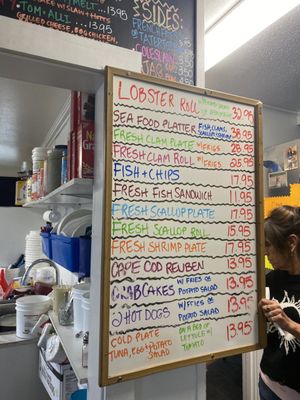 MELT" ...13.95
TOM·ALLI...13.95
GRILLED CHEESE, BBQ CHICKEN
SIDES:
TATERTOTS
COLESLAW
LOBSTER ROLL 32.95
SEA FOOD PLATTER FISH, CLAMS, 38.95
FRESH CLAM PLATE W/FRIES 28.95
FRESH CLAM ROLL W/FRIES 25.95
FISH + CHIPS 17.95
FRESH FISH SANDWICH 11.95
FRESH SCALLOP PLATE 17.95
FRESH SCALLOP ROLL 15.95
FRESH SHRIMP PLATE 17.95
CAPE COD REUBEN 13.95
CRABCAKES W/FRIES OR POTATO SALAD 13.95
2 HOT DOGS W/FRIES OR POTATO SALAD 13.95
COLD PLATE ON A BED OF LETTUCE + TOMATO 13.95
TUNA, EGG + POTATO SALAD